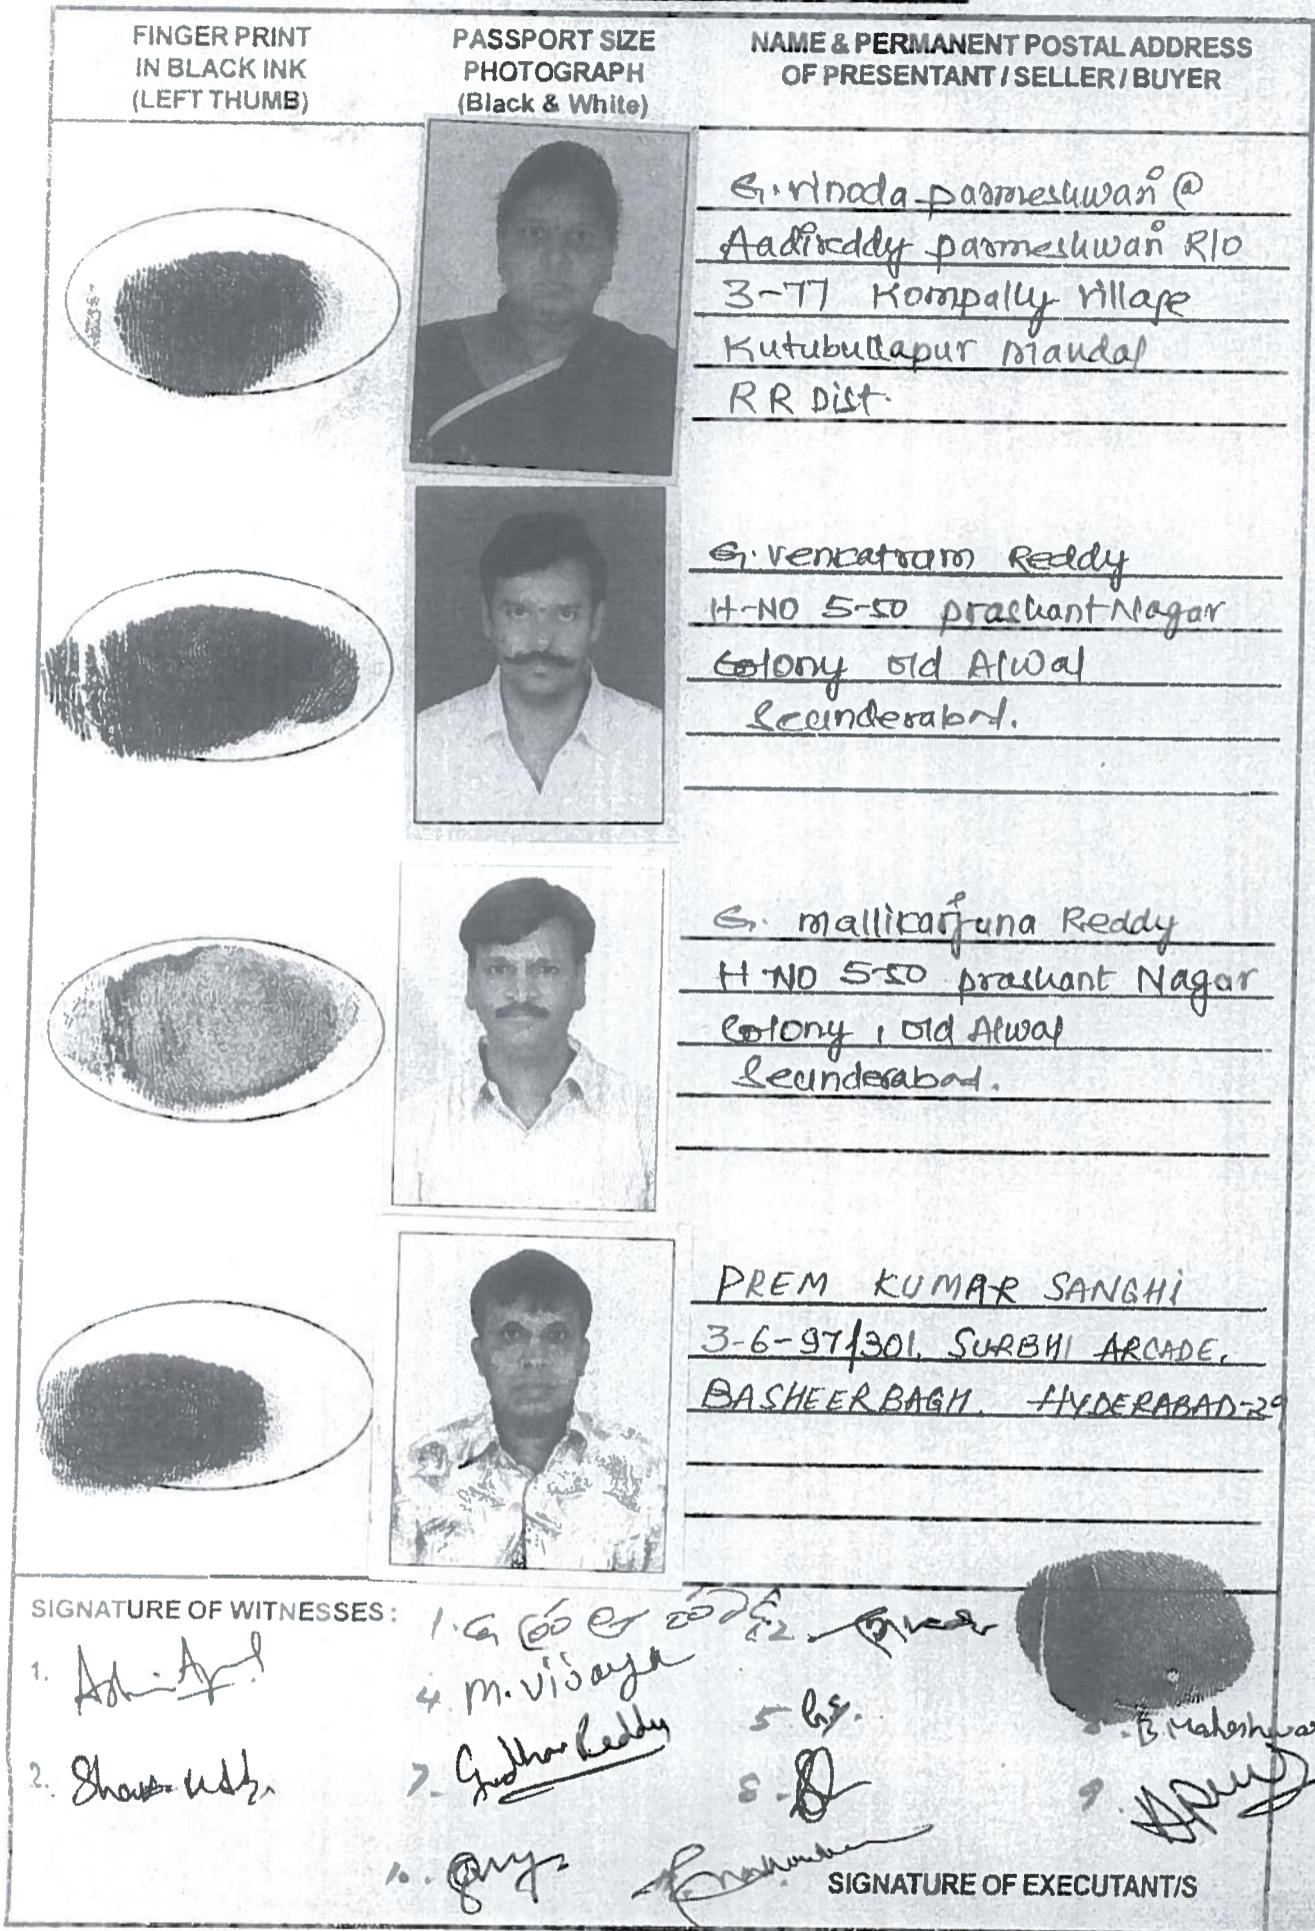 FINGER PRINT
IN BLACK INK
(LEFT THUMB)
PASSPORT SIZE
PHOTOGRAPH
(Black & White)
NAME & PERMANENT POSTAL ADDRESS
OF PRESENTANT / SELLER / BUYER
G. Vinoda parmeshwari @
Aadireddy parmeshwari R/o
3-77 Kompally Village
Kutubullapur Mandal
R R Dist.
G. Vencatram Reddy
H-NO 5-50 prashant Nagar
Colony old Alwal
Secunderabad.
G. mallikarjuna Reddy
H-NO 5-50 prashant Nagar
Colony, old Alwal
Secunderabad.
PREM KUMAR SANGHI
3-6-97/301, SURBHI ARCADE,
BASHEERBAGH. HYDERABAD-29
SIGNATURE OF WITNESSES :
1.
2.
1.
2.
4. M. Vijaya
5.
B. Maheshwar
7. Sridhar Reddy
8.
9.
10.
SIGNATURE OF EXECUTANT/S